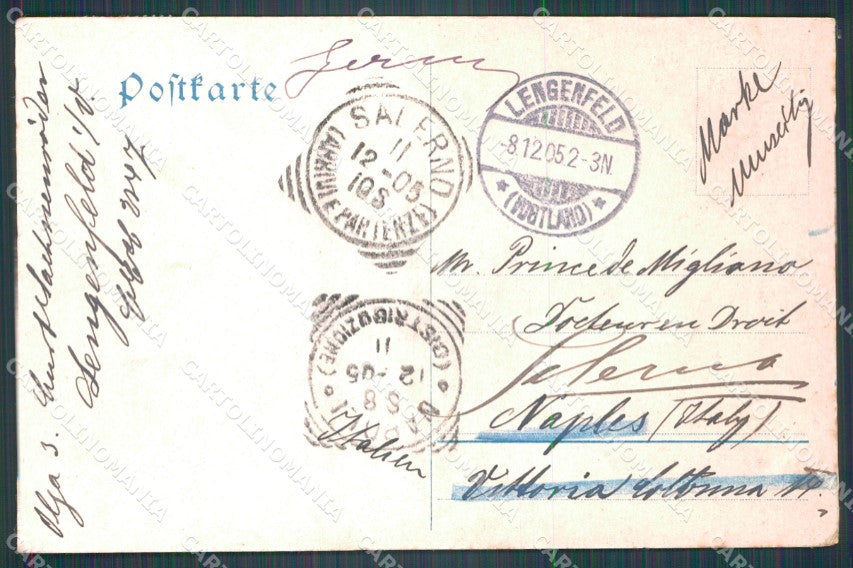 Postkarte
Germ
SALERNO
11
12 - 05
10S
(ARRIVI E PARTENZE)
LENGENFELD
-8.12.05.2-3N.
* (VOGTLAND) *
Marke
Mr. Prince de Migliano
Docteur en Droit
Salerno
Naples (Italy)
Vittoria Colonna 14.
Italien
NAPOLI
5 8
12 - 05
11
(DISTRIBUZIONE)
Olga z.
Lengenfeld i/V.
CARTOLINOMANIA